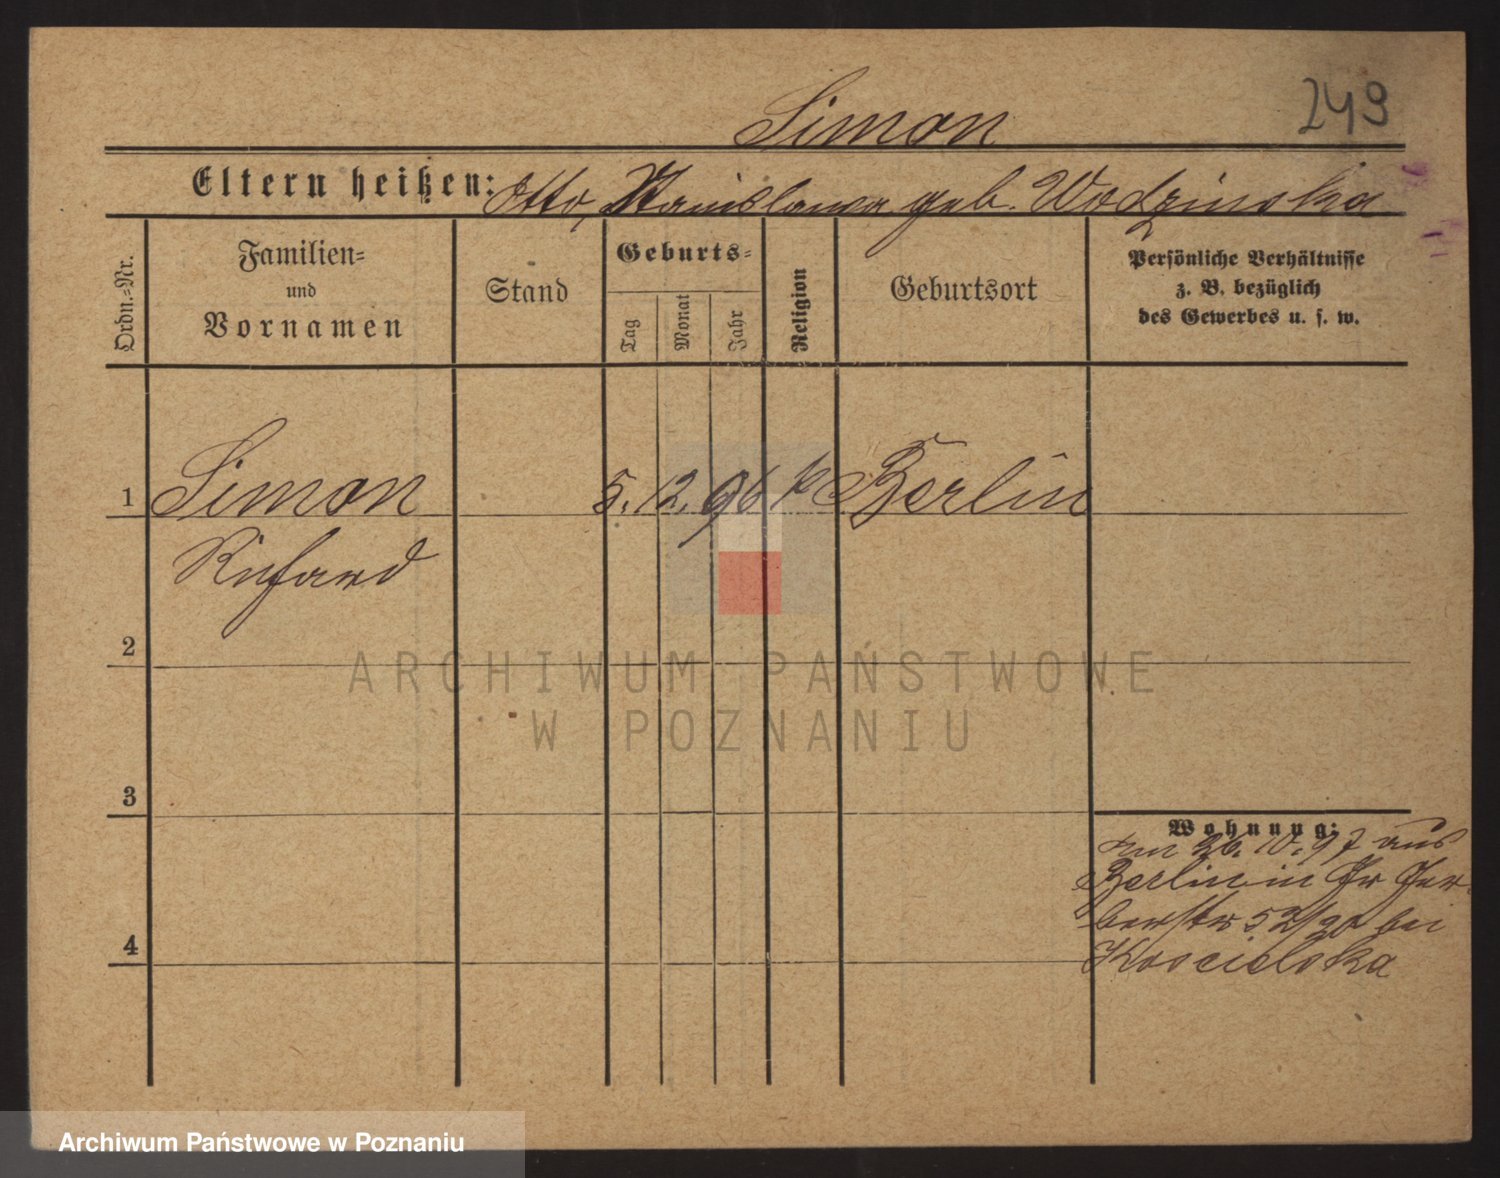 Simon
249
Eltern heißen: Otto, Stanislawa geb. Wodzinska
Ordn.-Nr.
Familien-
und
Vornamen
Stand
Geburts-
Tag
Monat
Jahr
Religion
Geburtsort
Persönliche Verhältnisse
z. B. bezüglich
des Gewerbes u. s. w.
1 Simon 5. 12. 96 k Berlin
Richard
2
3
4
Wohnung:
26. 10. 97 aus
Berlin in Gr Ger-
berstr 52/ bei
Koscielska
ARCHIWUM PAŃSTWOWE
W POZNANIU
Archiwum Państwowe w Poznaniu